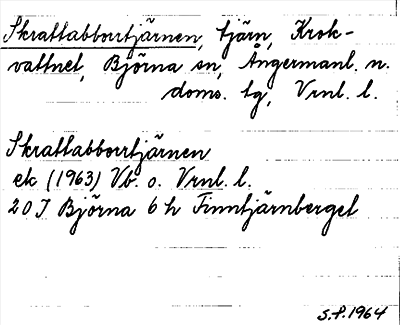 Skrattabborrtjärnen, tjärn, Krok-
vattnet, Björna sn, Ångermanl. n.
doms. tg, Vrnl. l.
Skrattabborrtjärnen
ek (1963) Vb. o. Vrnl. l.
20 I Björna 6 h Finntjärnberget
S.P. 1964